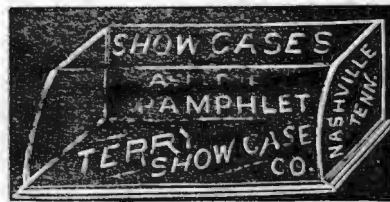 SHOW CASES
PAMPHLET
TERRY
SHOW CASE
CO.
NASHVILLE
TENN.